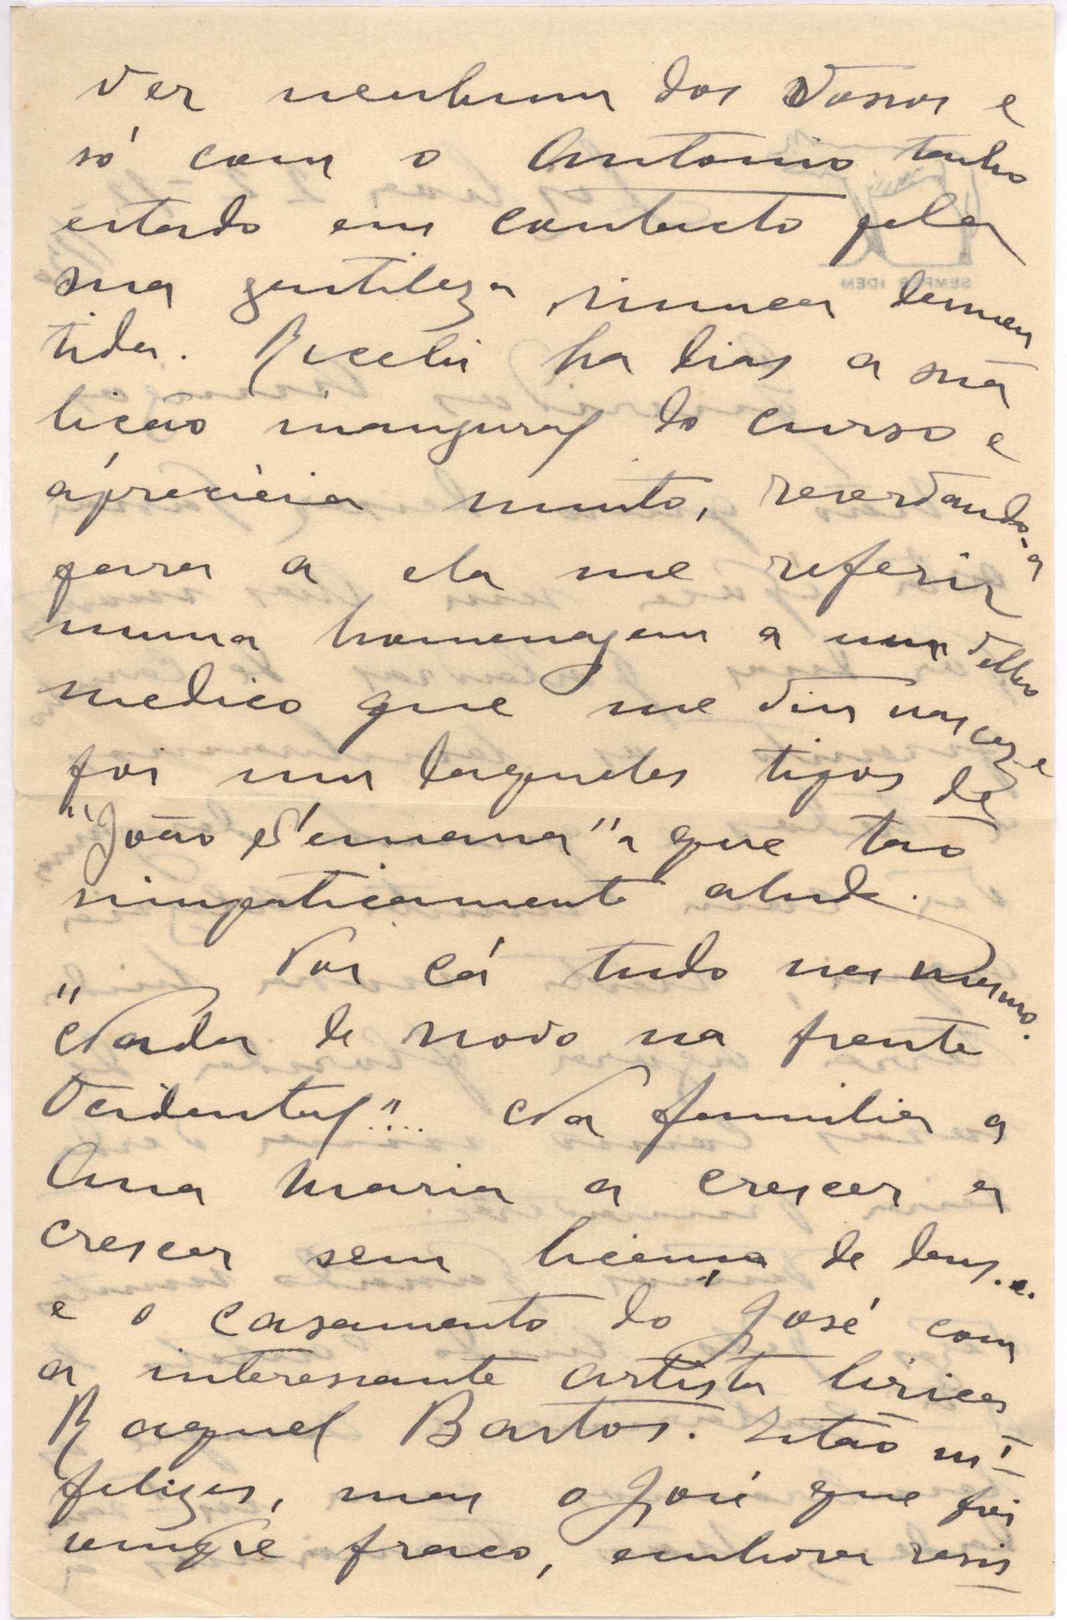 ver nenhum dos Vossos e
só com o Antonio tenho
estado em contacto pela
sua gentileza nunca desmen
tida. Recebi ha dias a sua
lição inaugural do curso e
apreciei-a muito, reservando-a
para a ela me referir
numa homenagem a um velho
medico que me viu nascer e
foi um daqueles tipos de
"João Semana" a que tão
simpaticamente alude.
Por cá tudo na mesma.
"Nada de novo na frente
Ocidental"... Na familia a
Ana Maria a crescer a
crescer sem licença de Deus...
e o casamento do José com
a interessante artista lirica
Raquel Bastos. Estão mto
felizes, mas o José que foi
sempre fraco, embora resis
SEMPER IDEM